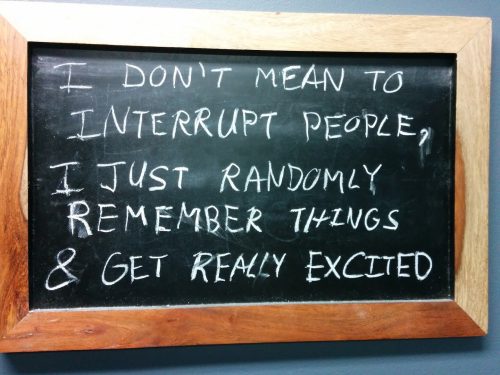 I DON'T MEAN TO
INTERRUPT PEOPLE,
I JUST RANDOMLY
REMEMBER THINGS
& GET REALLY EXCITED